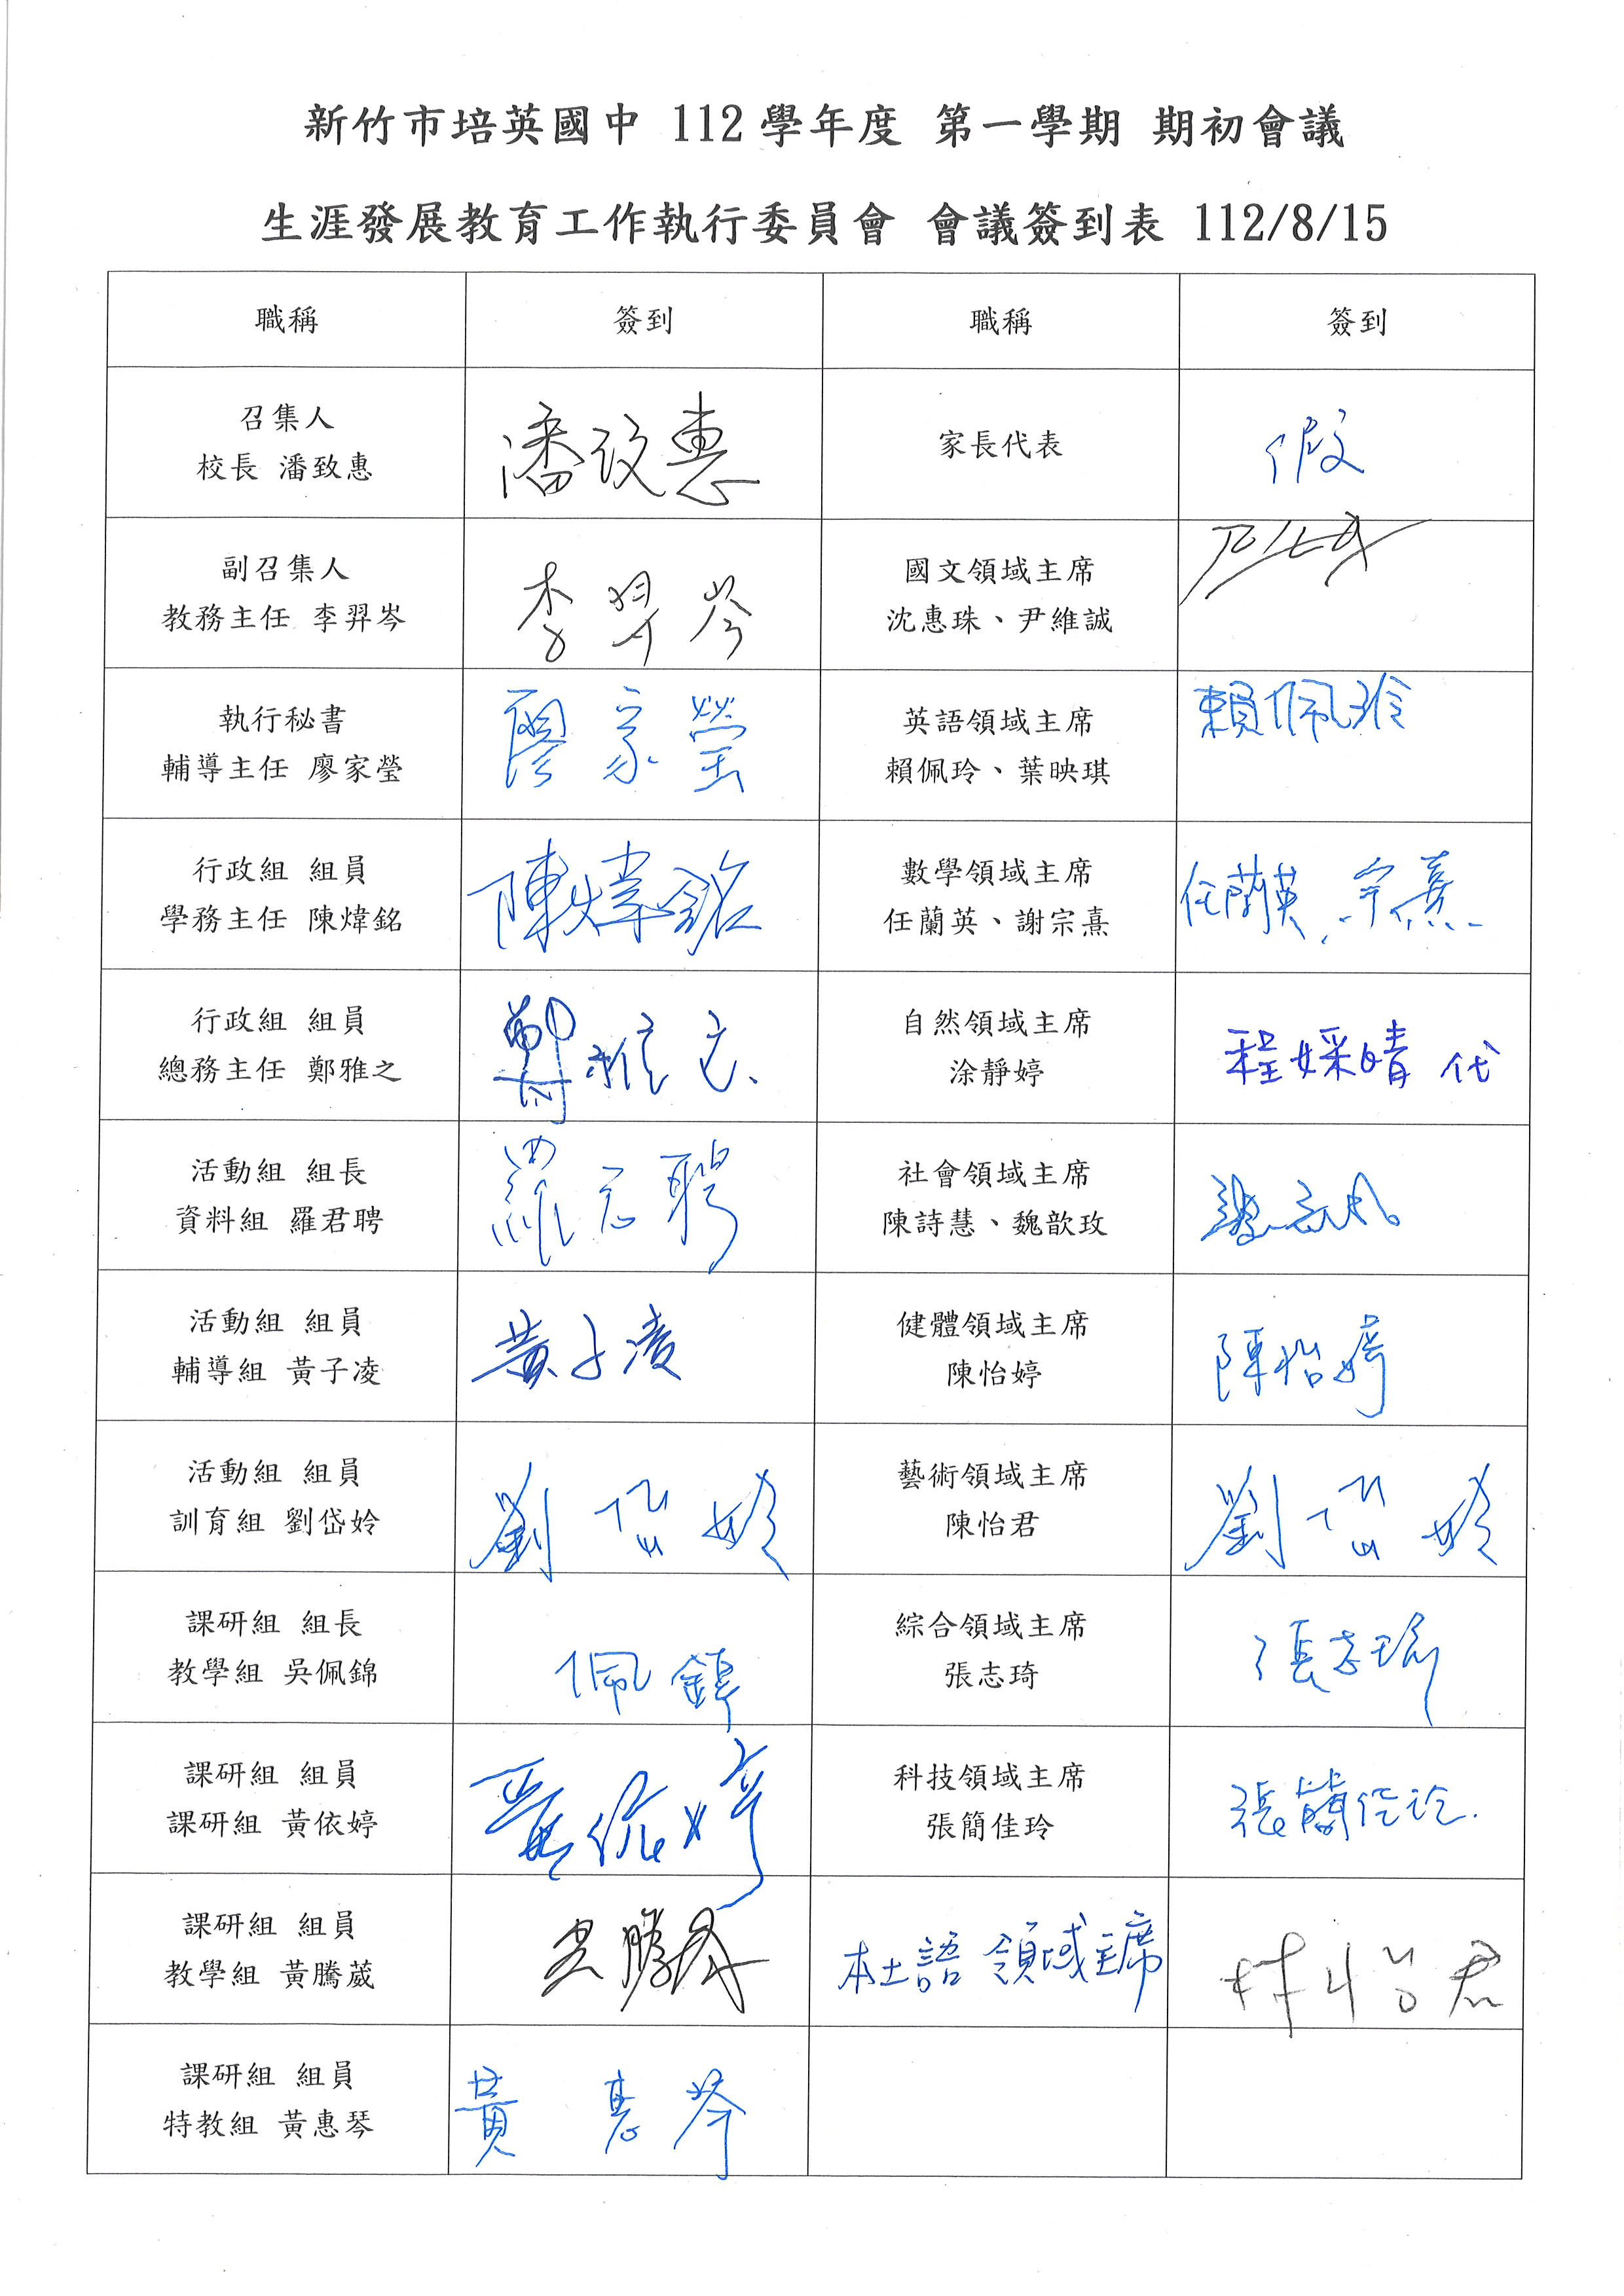 新竹市培英國中 112 學年度 第一學期 期初會議
生涯發展教育工作執行委員會 會議簽到表 112/8/15
職稱 簽到 職稱 簽到
召集人
校長 潘致惠
潘致惠
家長代表
假
副召集人
教務主任 李羿岑
李羿岑
國文領域主席
沈惠珠、尹維誠
執行秘書
輔導主任 廖家瑩
廖家瑩
英語領域主席
賴佩玲、葉映琪
賴佩玲
行政組 組員
學務主任 陳煒銘
陳煒銘
數學領域主席
任蘭英、謝宗熹
任蘭英、宗熹
行政組 組員
總務主任 鄭雅之
鄭雅之
自然領域主席
涂靜婷
程婇晴 代
活動組 組長
資料組 羅君聘
羅君聘
社會領域主席
陳詩慧、魏歆玫
活動組 組員
輔導組 黃子凌
黃子凌
健體領域主席
陳怡婷
陳怡婷
活動組 組員
訓育組 劉岱姈
劉岱姈
藝術領域主席
陳怡君
劉岱姈
課研組 組長
教學組 吳佩錦
佩錦
綜合領域主席
張志琦
張志琦
課研組 組員
課研組 黃依婷
黃依婷
科技領域主席
張簡佳玲
張簡佳玲
課研組 組員
教學組 黃騰葳
黃騰葳
本土語領域主席
林怡君
課研組 組員
特教組 黃惠琴
黃惠琴